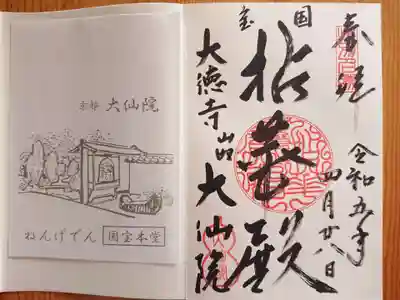 京都 大仙院
ねんげでん 国宝本堂
奉拝
令和五年
四月廿八日
国宝
拈華殿
大徳寺山内 大仙院